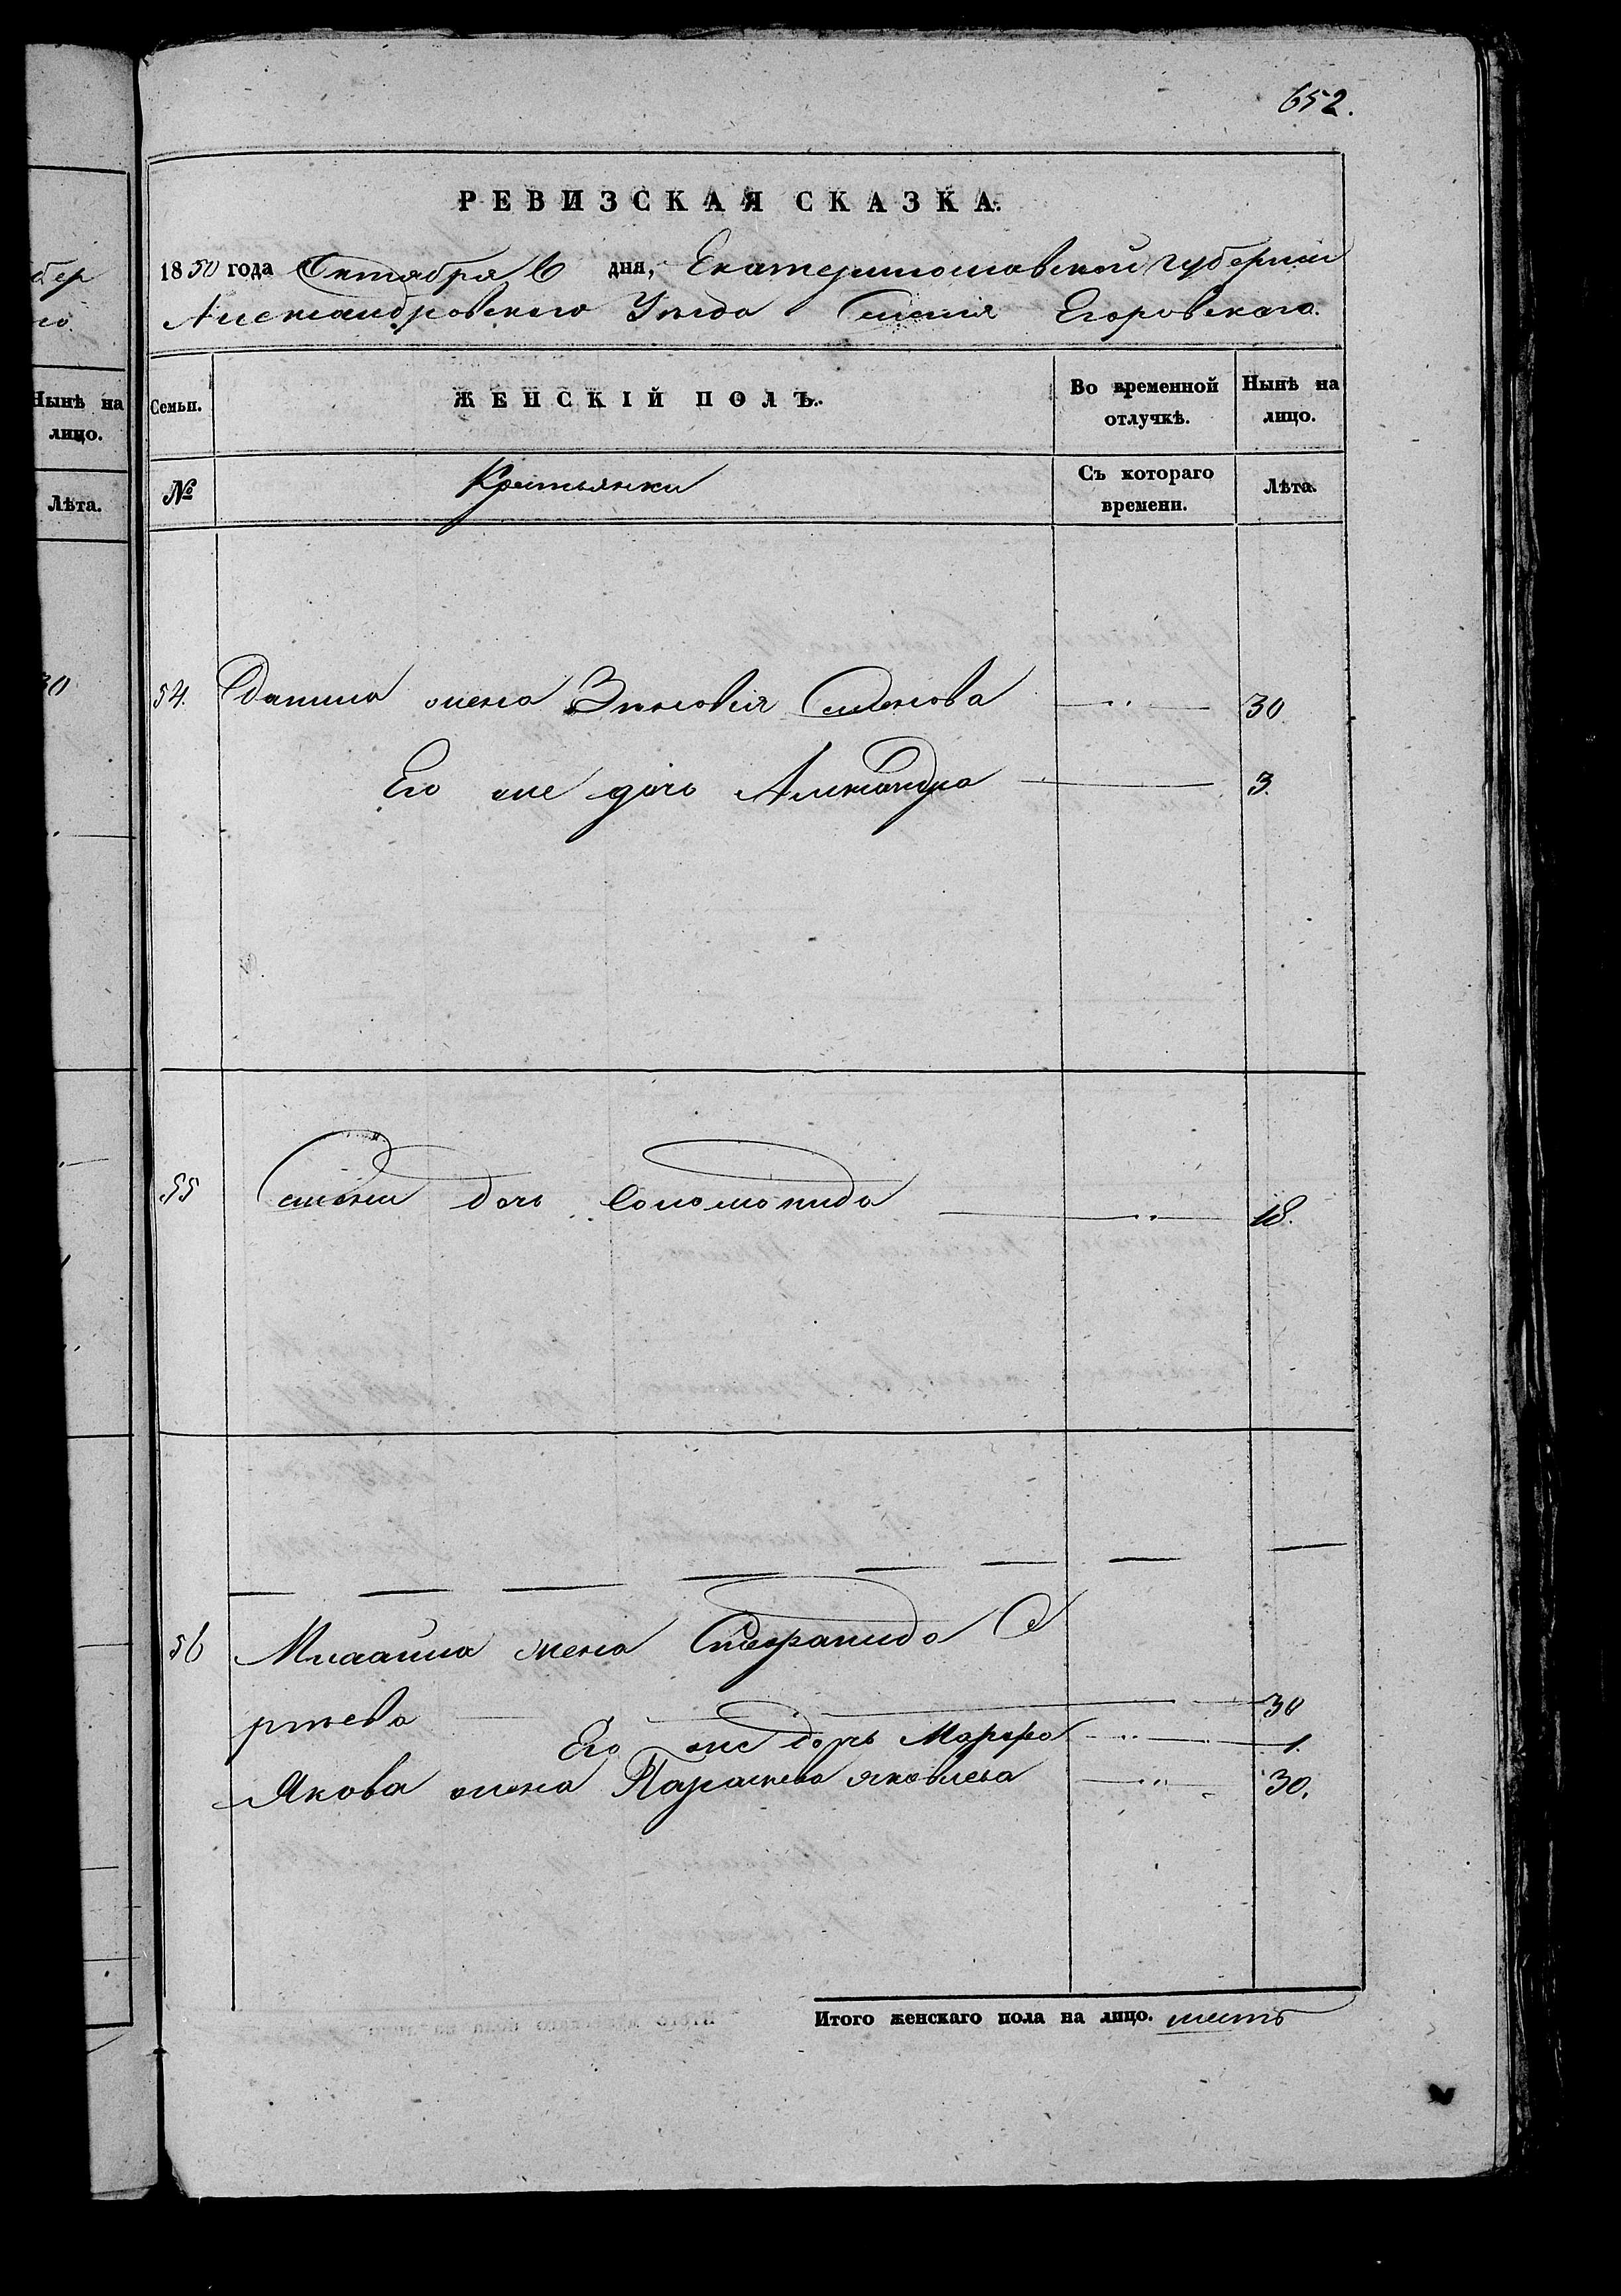 652.
РЕВИЗСКАЯ СКАЗКА.
1850 года Октября 6 дня, Екатеринославской губернии
Александровского Уезда Имения Егоровскаго.
Семьи. ЖЕНСКІЙ ПОЛЪ. Во временной отлучкѣ. Нынѣ на лицо.
№ Крестьянки Съ котораго времени. Лѣта.
54. Данила жена Зиновія Семенова 30
Его же дочь Александра 3.
55 Семена дочь Соломонида 18.
56 Михайла жена Степанида
ртева 30
Его же дочь Марфа 1.
Якова жена Параскева Яковлева 30.
Итого женскаго пола на лицо. шесть
бер
го
Нынѣ на
лицо.
Лѣта.
30